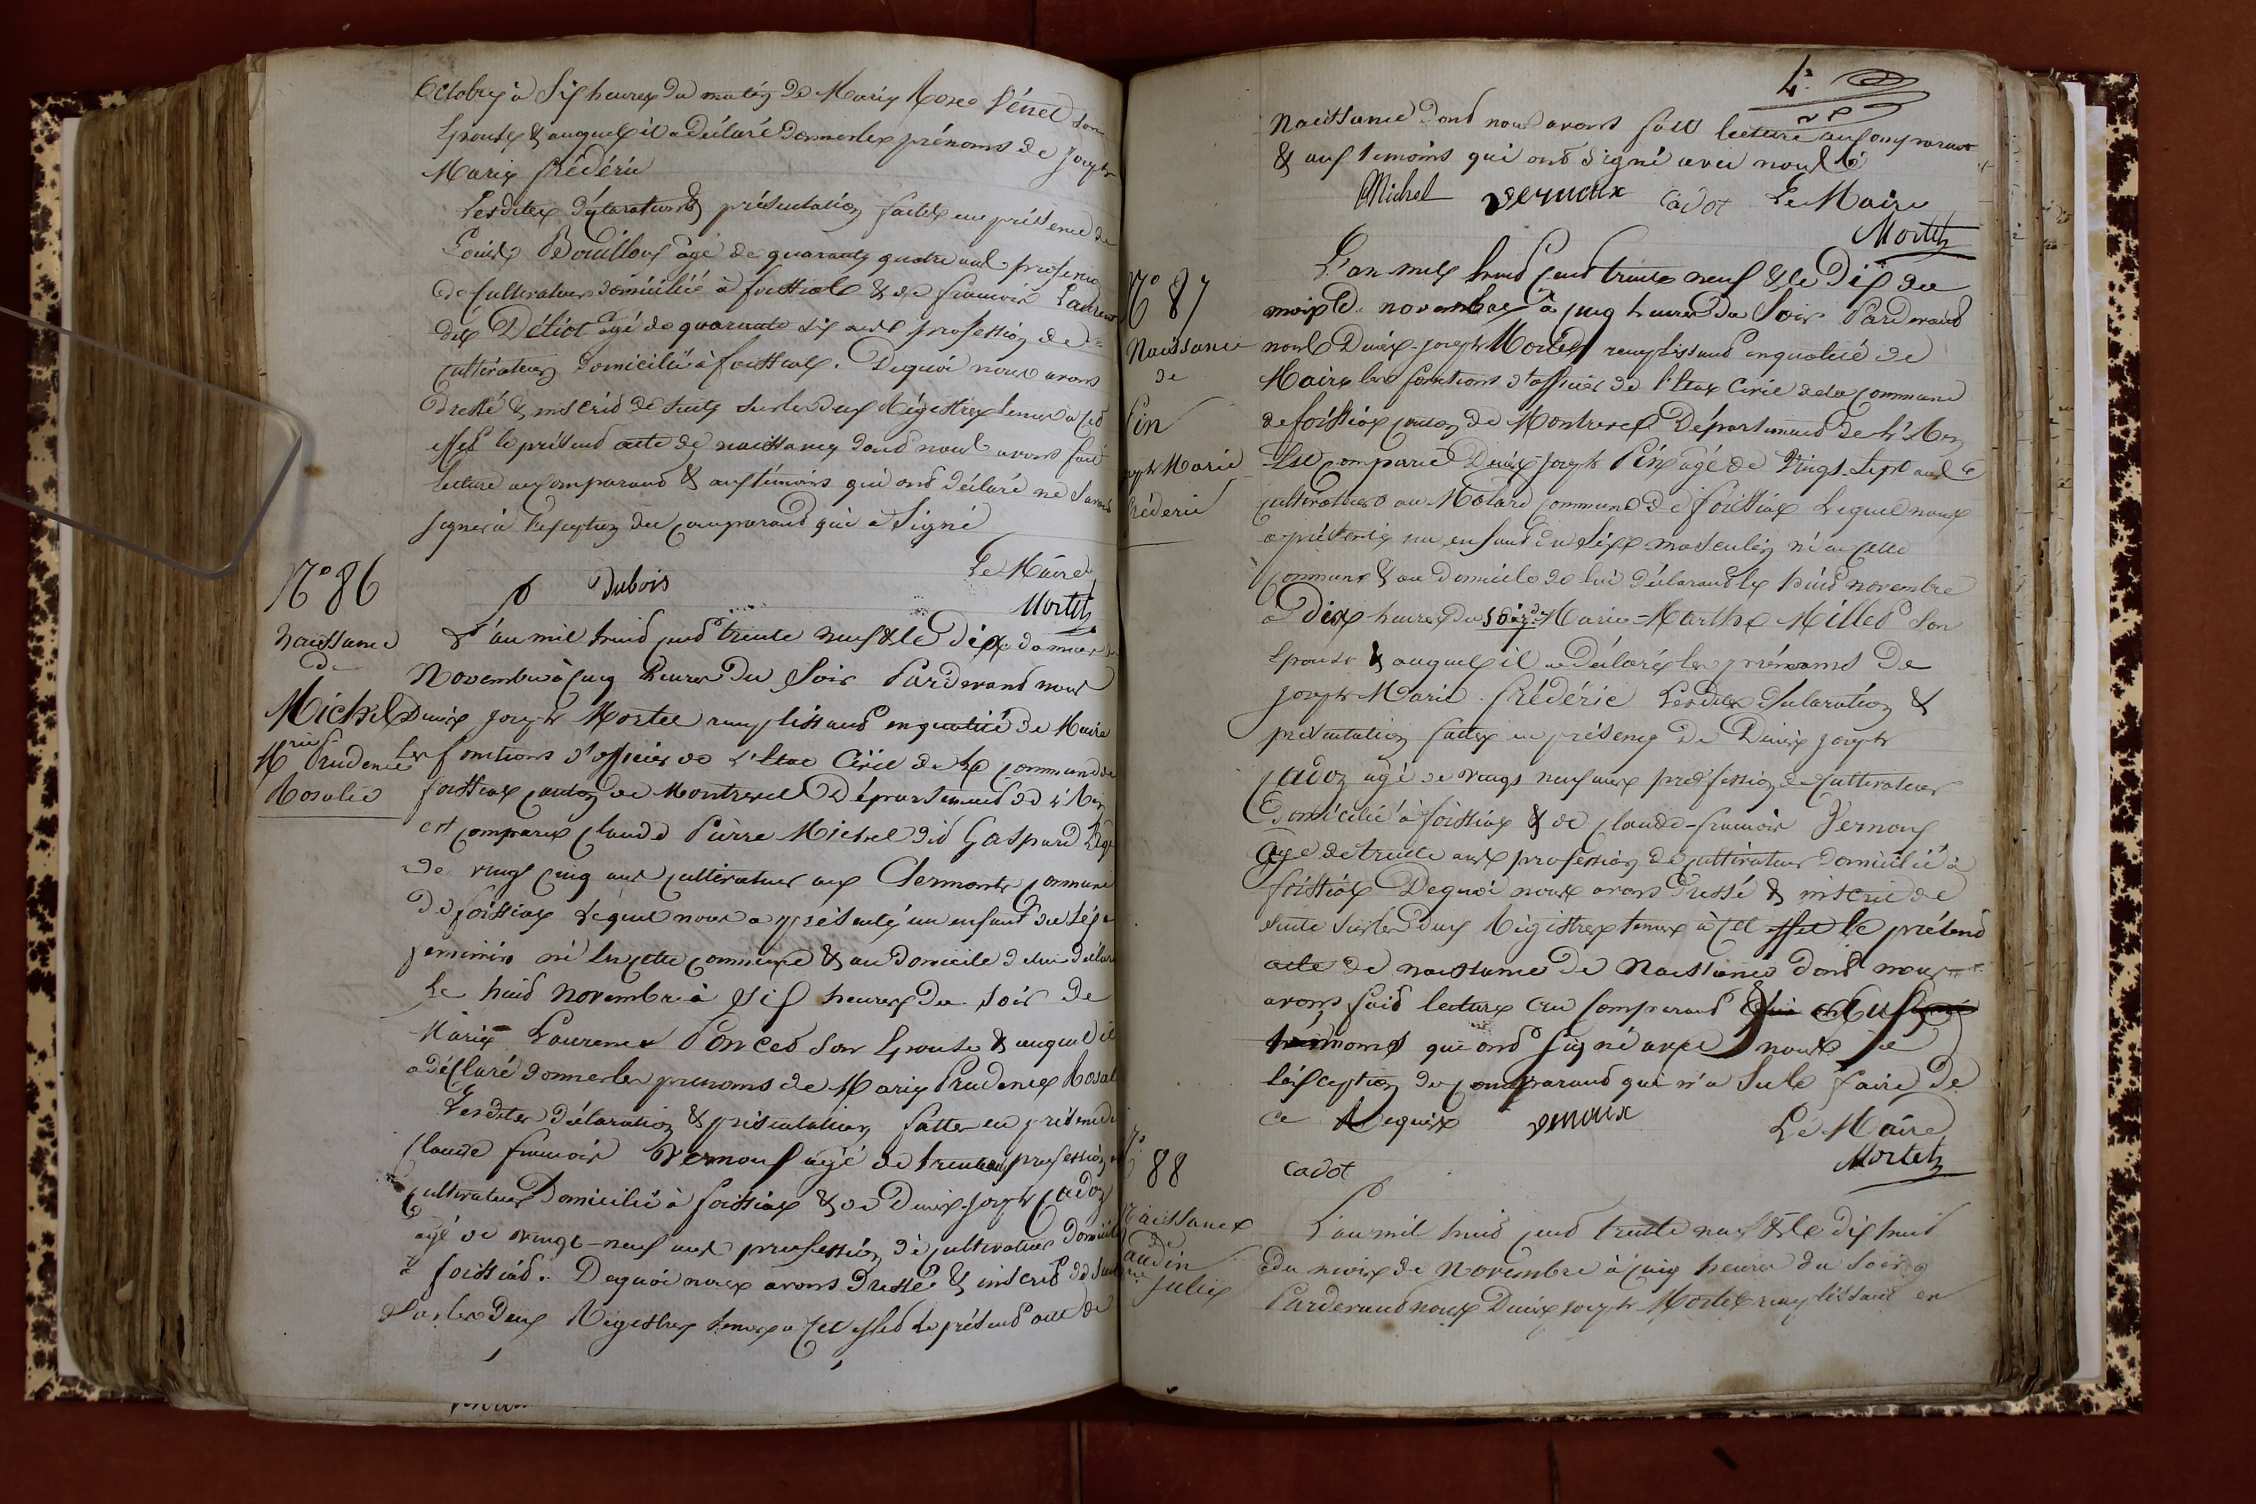 Octobre à Six heures du matin de Marie Rose Vénet son
Epouse & auquel il a déclaré donner les prénoms de Joseph
Marie frédéric
Lesdites déclaration & présentation faites en présence de
Louis Bouilloux âgé de quarante quatre ans profession
de Cultivateur domicilié à foissiat & de francois Laurent
dit Déliot âgé de quarante six ans profession de
Cultivateur domicilié à foissiat. Dequoi nous avons
dressé & inscrid de suite sur les deux Régistres tenus à cet
effet le présend acte de naissance dond nous avons fait
lecture au Comparand & aux témoins qui ond déclaré ne Savoir
signer à l'exception du comparand qui a Signé
Le Maire
Dubois
Mortel
N° 86
naissance
de
Michel
Mie Prudence
Rosalie
L'an mil huid cend trente neuf & le dix du mois de
Novembre à cinq heures du Soir Pardevand nous
Denis Joseph Mortel remplissand en qualité de Maire
les fonctions d'officier de l'Etat Civil de la commune de
foissiat canton de Montrevel Département de l'Ain
est comparu Claude Pierre Michel did Gaspard âgé
de vingt cinq ans cultivateur aux Clermonts commune
de foissiat Lequel nous a présenté un enfant du séxe
feminin né en cette commune & au domicile de lui déclarant
Le huid Novembre à Six heures du soir de
Marie Laurence Ponced son Epouse & auquel il
a déclaré donner les prenoms de Marie Prudence Rosalie
Lesdites déclaration & présentation faites en présence de
Claude francois Vernoux âgé de trente ans profession de
Cultivateur domicilié à foissiat & de Denis Joseph Cadoz
âgé de vingt-neuf ans profession de cultivateur domicilié
à foissiad. Dequoi nous avons dressé & inscrid de suite
sur les deux Régistres tenus à cet effed le présend acte de
4e
naissance dond nous avons faid lecture au comparant
& aux témoins qui ond signé avec nous
Michel Vernoux Cadot Le Maire
Mortel
N° 87
Naissance
de
Pin
Joseph Marie
fréderic
L'an mil huid cend trente neuf & le Dix du
mois de novembre à cinq heures du Soir Pardevand
nous Denis Joseph Mortel remplissand en qualité de
Maire les fonctions d'officier de l'Etat Civil de la commune
de foissiat canton de Montrevel Département de l'Ain
Est comparu Denis Joseph Pin âgé de Vingt-Sept ans
cultivateur au Molard commune de foissiat Lequel nous
a présenté un enfand du Séxe masculin né en cette
commune & au domicile de lui déclarand le huid novembre
à Dix heures du soir de Marie-Marthe Milled Son
Epouse & auquel il a déclaré les prénoms de
Joseph Marie frédéric Lesdites déclaration &
présentation faites en présence de Denis Joseph
Cadoz âgé de vingt neuf ans profession de Cultivateur
Domicilié à foissiat & de Claude-francois Vernoux
âgé de trente ans profession de cultivateur domicilié à
foissiat Dequoi nous avons dressé & inscrid de
suite sur les deux Régistres tenus à cet effet le présend
acte de naissance de Naissance dond nous
avons faid lecture au Comparand & aux
témoins qui ond signé avec nous à
l'éxception du comparand qui n'a Su le faire de
ce Requis Vernoux Le Maire
Cadot Mortel
N° 88
Naissance
de
Julie
L'an mil huid cend trente neuf & le dix huid
du mois de Novembre à cinq heures du Soir
Pardevand nous Denis Joseph Mortel remplissand en